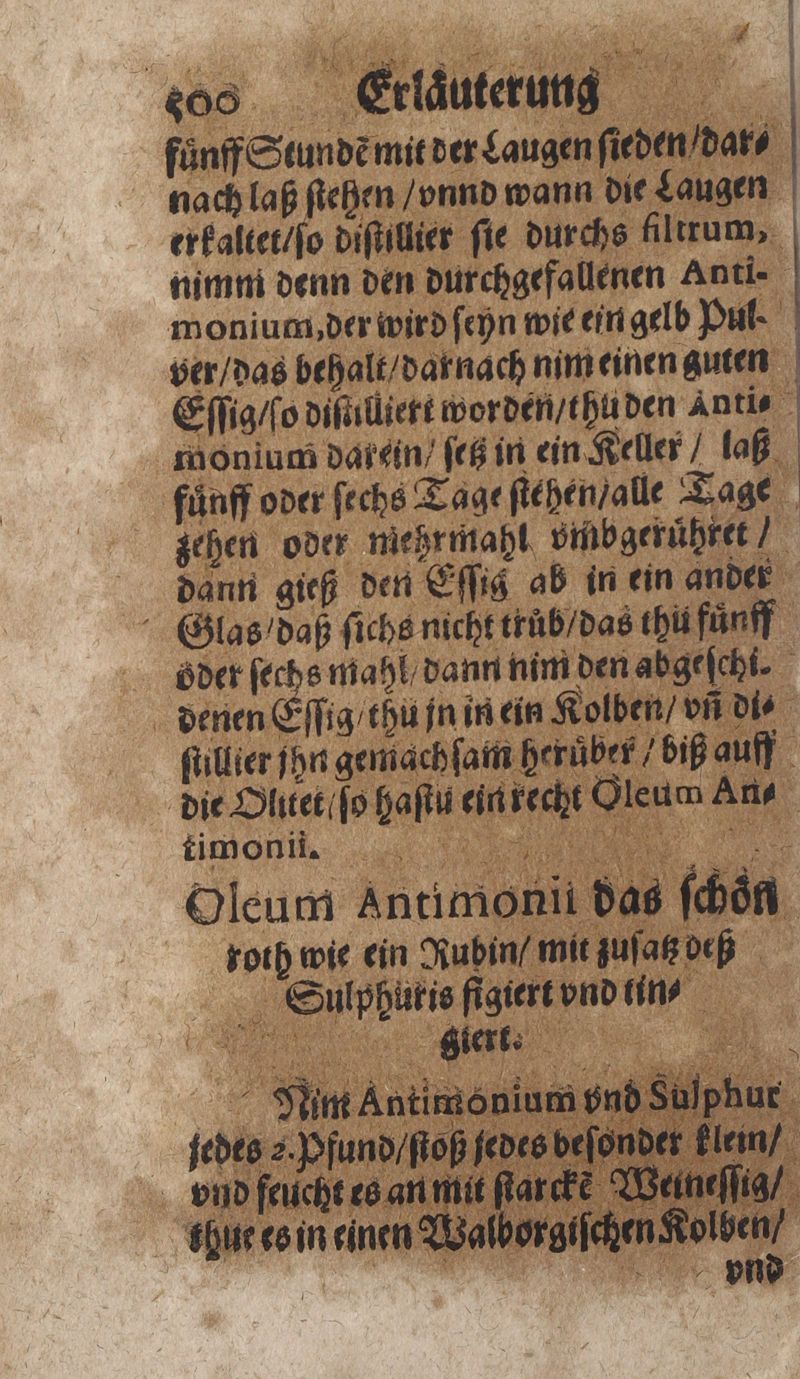 500 Erlåuterung
fůnff Stundẽ mit der Laugen ſieden/dar⸗
nach laß ſtehen /vnnd wann die Laugen
erkaltet/ſo diſtillier ſie durchs filtrum,
nimm denn den durchgefallenen Anti-
monium,der wird ſeyn wie ein gelb Pul-
ver/das behalt/darnach nim einen guten
Eſſig/ſo diſtilliert worden/thu den Anti⸗
monium darein/ ſetz in ein Keller / laß
fůnff oder ſechs Tage ſtehen/alle Tage
zehen oder mehrmahl vmbgerůhret /
dann gieß den Eſſig ab in ein ander
Glas/daß ſichs nicht trůb/das thu fůnff
oder ſechs mahl/dann nim den abgeſchi-
denen Eſſig/thu jn in ein Kolben/ vñ di⸗
ſtillier jhn gemachſam herůber / biß auff
die Olitet/ſo haſtu ein recht Oleum An⸗
timonii.
Oleum Antimonii das ſchön
roth wie ein Rubin/ mit zuſatz deß
Sulphuris figiert vnd tin⸗
giert.
Nim Antimonium vnd Sulphur
jedes 2.Pfund/ſtoß jedes beſonder klein/
vnd feucht es an mit ſtarckẽ Weineſſig/
thue es in einen Walborgiſchen Kolben/
vnd